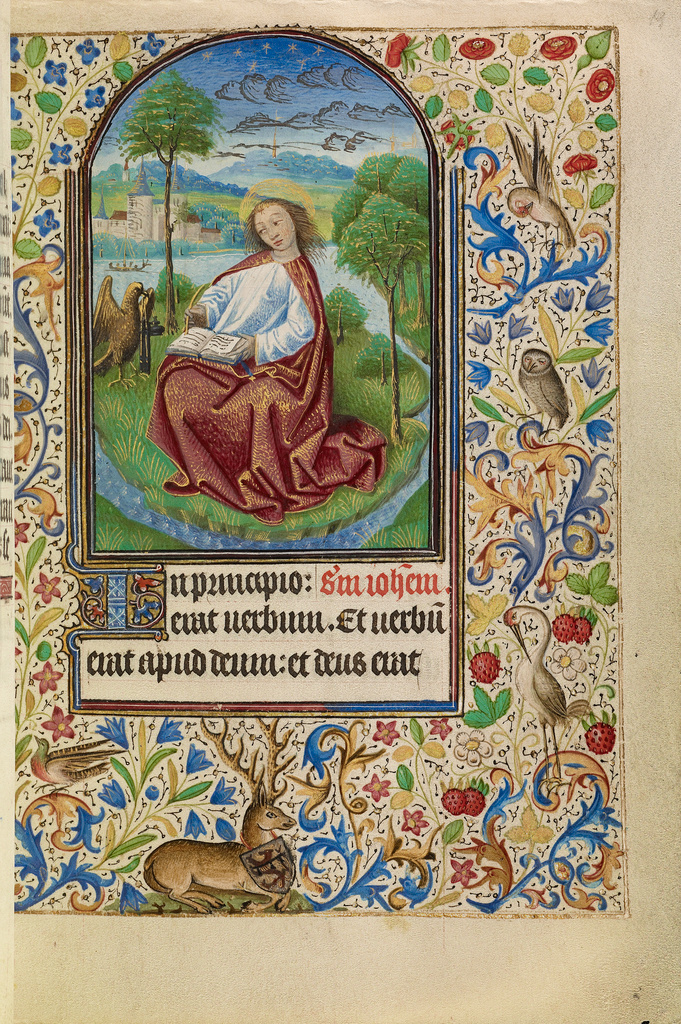 In principio: S'm ioh̅em.
erat uerbum. Et uerbū
erat apud deum: et deus erat